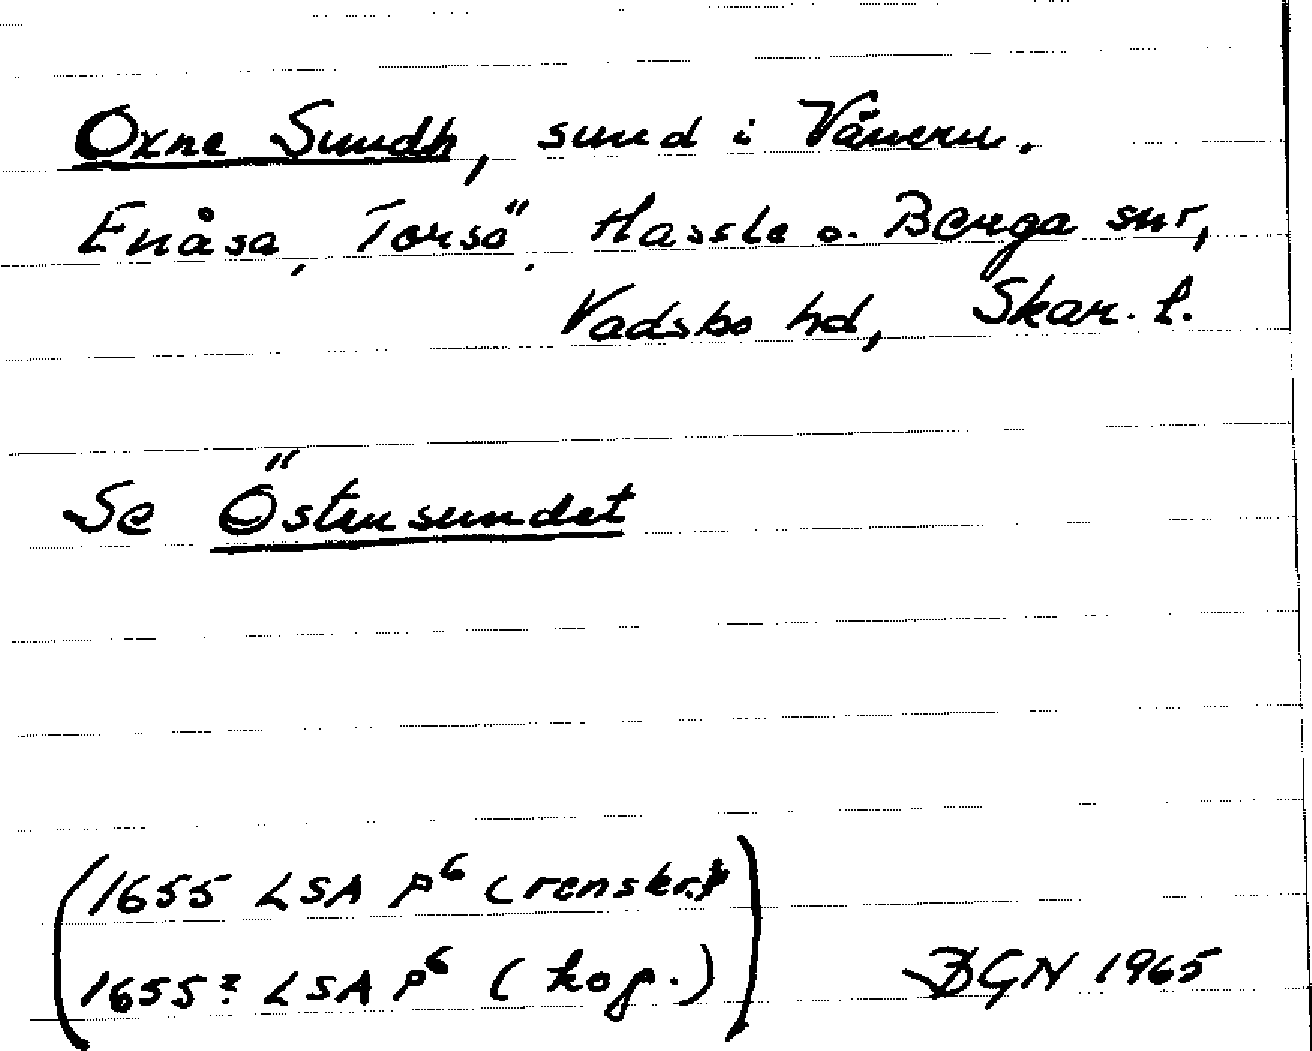 Oxne Sundh, sund i Vänern.
Enåsa, Torsö, Hassle o. Berga snr,
Vadsbo hd, Skar. l.
Se Östensundet
(1655 LSA P6 (renskr.)
1655? LSA P6 (kop.))
BGN 1965